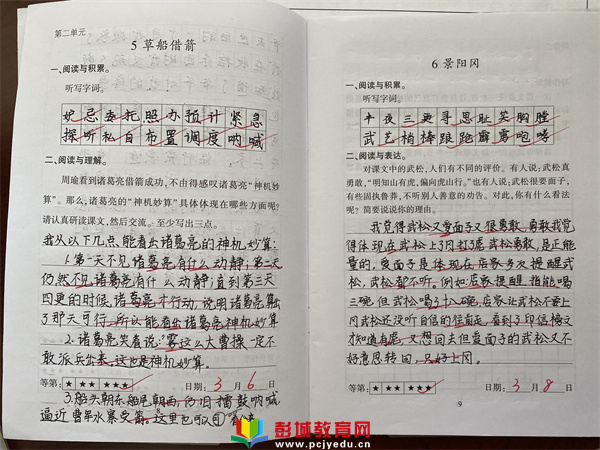 第二单元
5 草船借箭
一、阅读与积累。
听写字词。
妒忌委托照办预计紧急
探听私自布置调度呐喊
二、阅读与理解。
周瑜看到诸葛亮借箭成功，不由得感叹诸葛亮“神机妙
算”。那么，诸葛亮的“神机妙算”具体体现在哪些方面呢？
请认真研读课文，然后交流。至少写出三点。
我从以下几点能看出诸葛亮的神机妙算:
1.第一天不见诸葛亮有什么动静;第二天
仍然不见诸葛亮有什么动静;直到第三天
四更的时候,诸葛亮才行动,说明诸葛亮算出
了那天可行,所以能看出诸葛亮神机妙算
2.诸葛亮笑着说:“雾这么大曹操一定不
敢派兵出来,这也是神机妙算。
等第：★★★★★
日期：3月6日
3.船头朝东,船尾朝西,仍旧擂鼓呐喊,
逼近曹军水寨受箭。这里也可以
6 景阳冈
一、阅读与积累。
听写字词。
半夜三更寻思耻笑胸膛
武艺梢棒踉跄霹雳咆哮
二、阅读与表达。
对课文中的武松，人们有不同的评价。有人说：武松真
勇敢，“明知山有虎，偏向虎山行。”也有人说：武松很要面子，
有些固执鲁莽，不听别人善意的劝告。对此，你有什么看法
呢？简要说说你的理由。
我觉得武松又爱面子又很勇敢,勇敢我觉
得体现在武松上了冈打了虎武松勇敢,是正能
量的,爱面子是体现在店家多次提醒武
松,武松都不听。例如:店家提醒,指能喝
三碗但武松喝了十八碗,店家让武松不要上
冈武松还没听自信的往前走,看到了印信榜文
才知道有虎,又想回去但爱面子的武松又不
好意思转回,只好上冈。
等第：★★★★★
日期：3月8日
9
彭城教育网
www.pcjyedu.cn